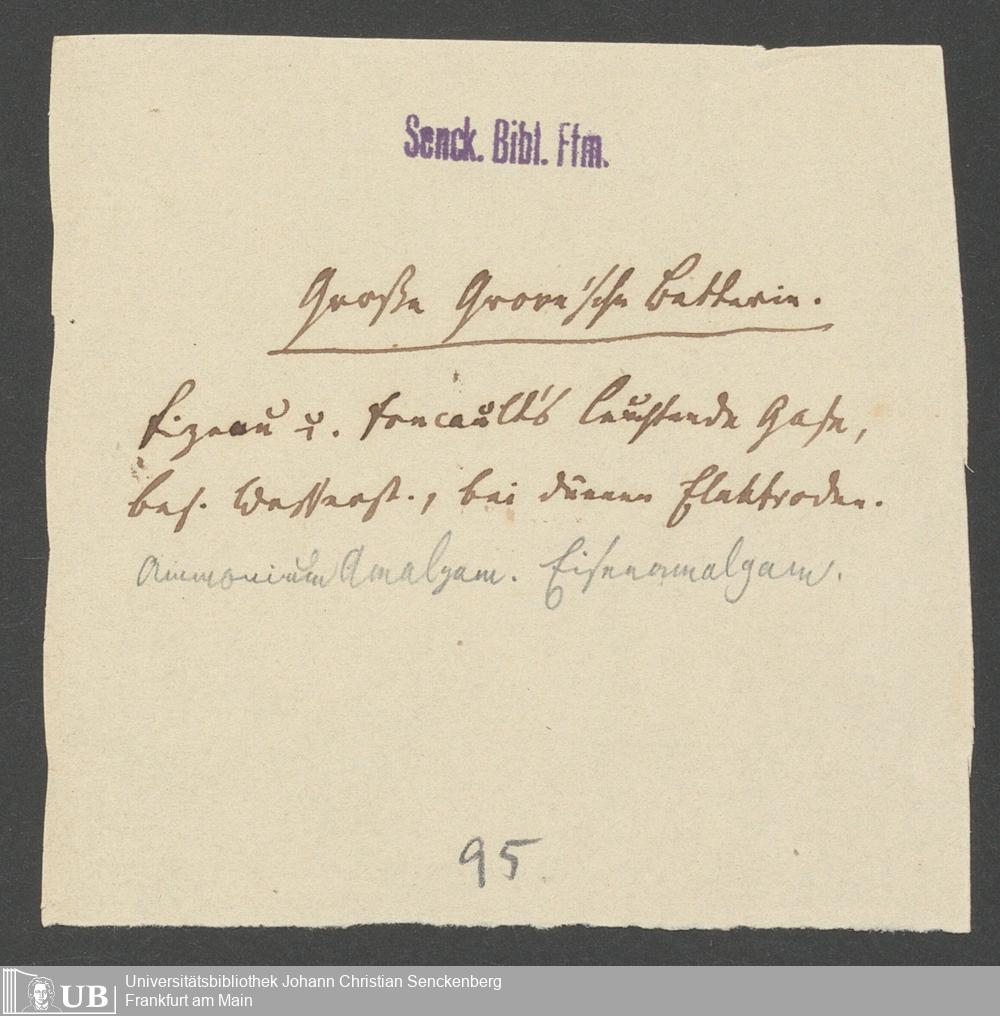 Senck. Bibl. Ffm.
Große Grove'sche Batterie.
Fizeau u. Foucault's leuchtende Gase,
bes. Wasserst., bei dünnen Elektroden.
Ammonium Amalgam. Eisenamalgam.
95
UB
Universitätsbibliothek Johann Christian Senckenberg
Frankfurt am Main